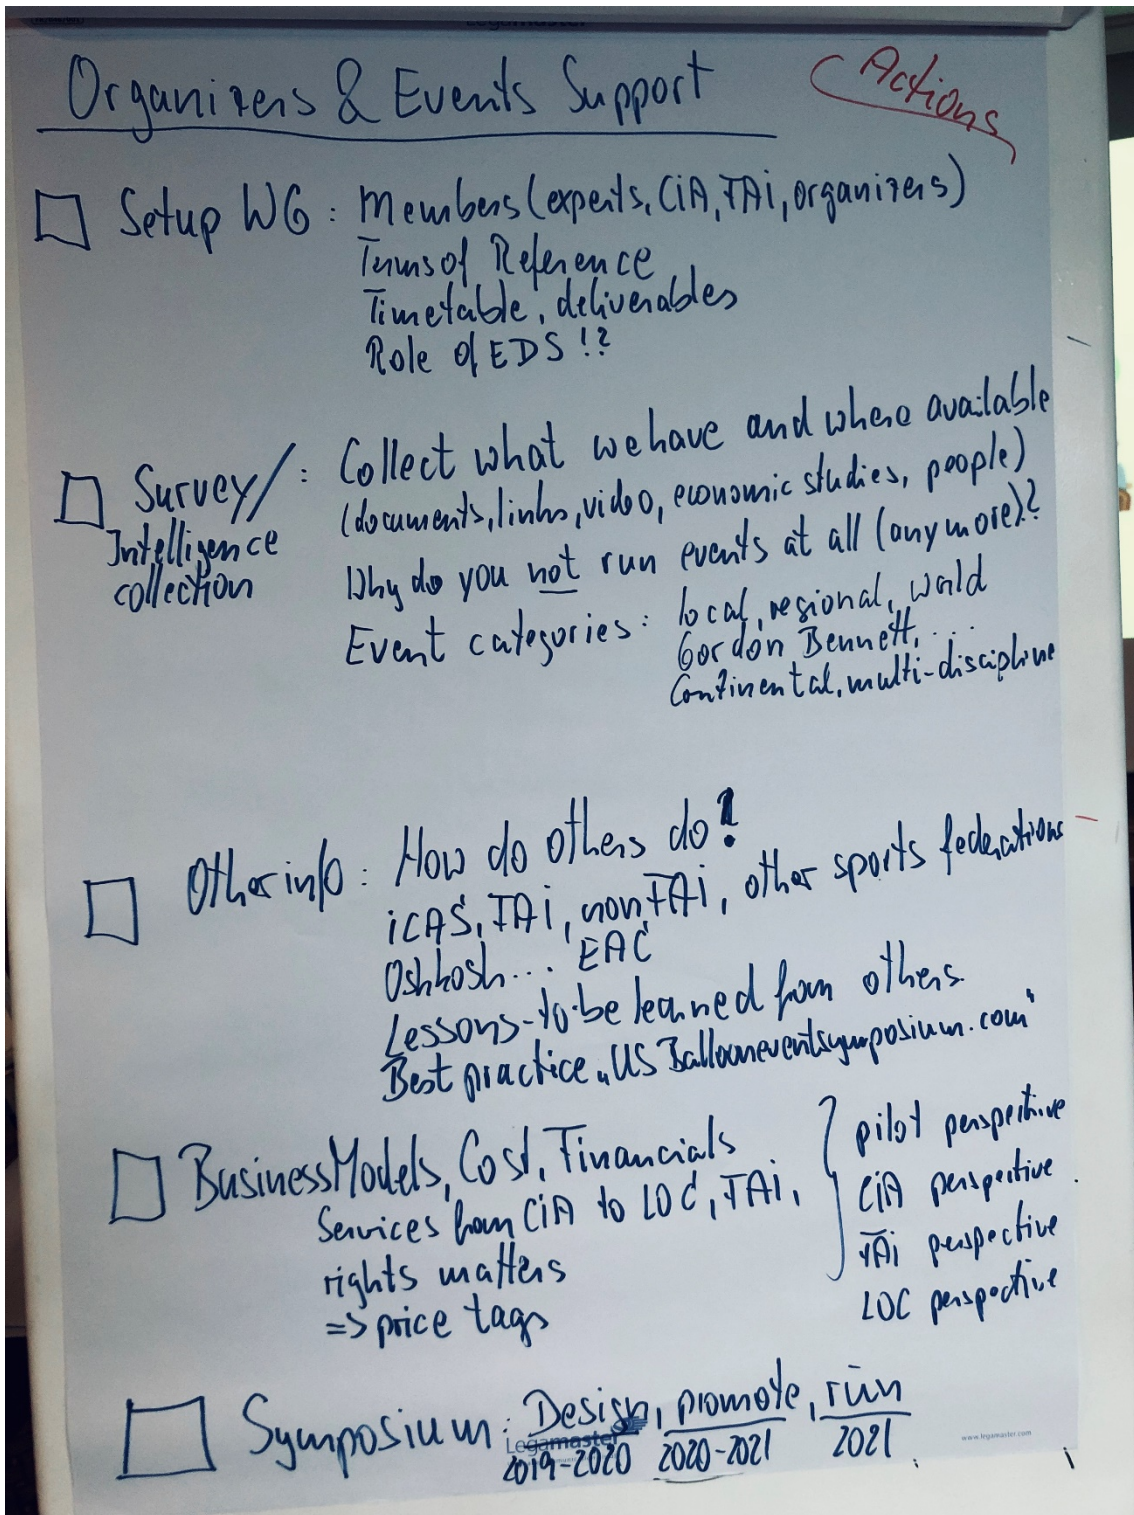 Legamaster
Organizers & Events Support
Actions
Setup WG: Members (experts, CiA, FAi, organizers)
Terms of Reference
Timetable, deliverables
Role of EDS!?
Survey/: Collect what we have and where available
Intelligence
collection
(documents, links, video, economic studies, people)
Why do you not run events at all (anymore)?
Event categories: local, regional, world
Gordon Bennett, ...
Continental, multi-discipline
Other info: How do others do!
iCAS, FAi, non FAi, other sports federations
Oshkosh... EAC
Lessons-to-be learned from others.
Best practice „US Ballooneventsymposium.com"
Business Models, Cost, Financials
Services from CiA to LOC, FAi,
rights matters
=> price tags
pilot perspective
CiA perspective
FAi perspective
LOC perspective
Symposium: Design, promote, run
Legamaster
2019-2020 2020-2021 2021
www.legamaster.com